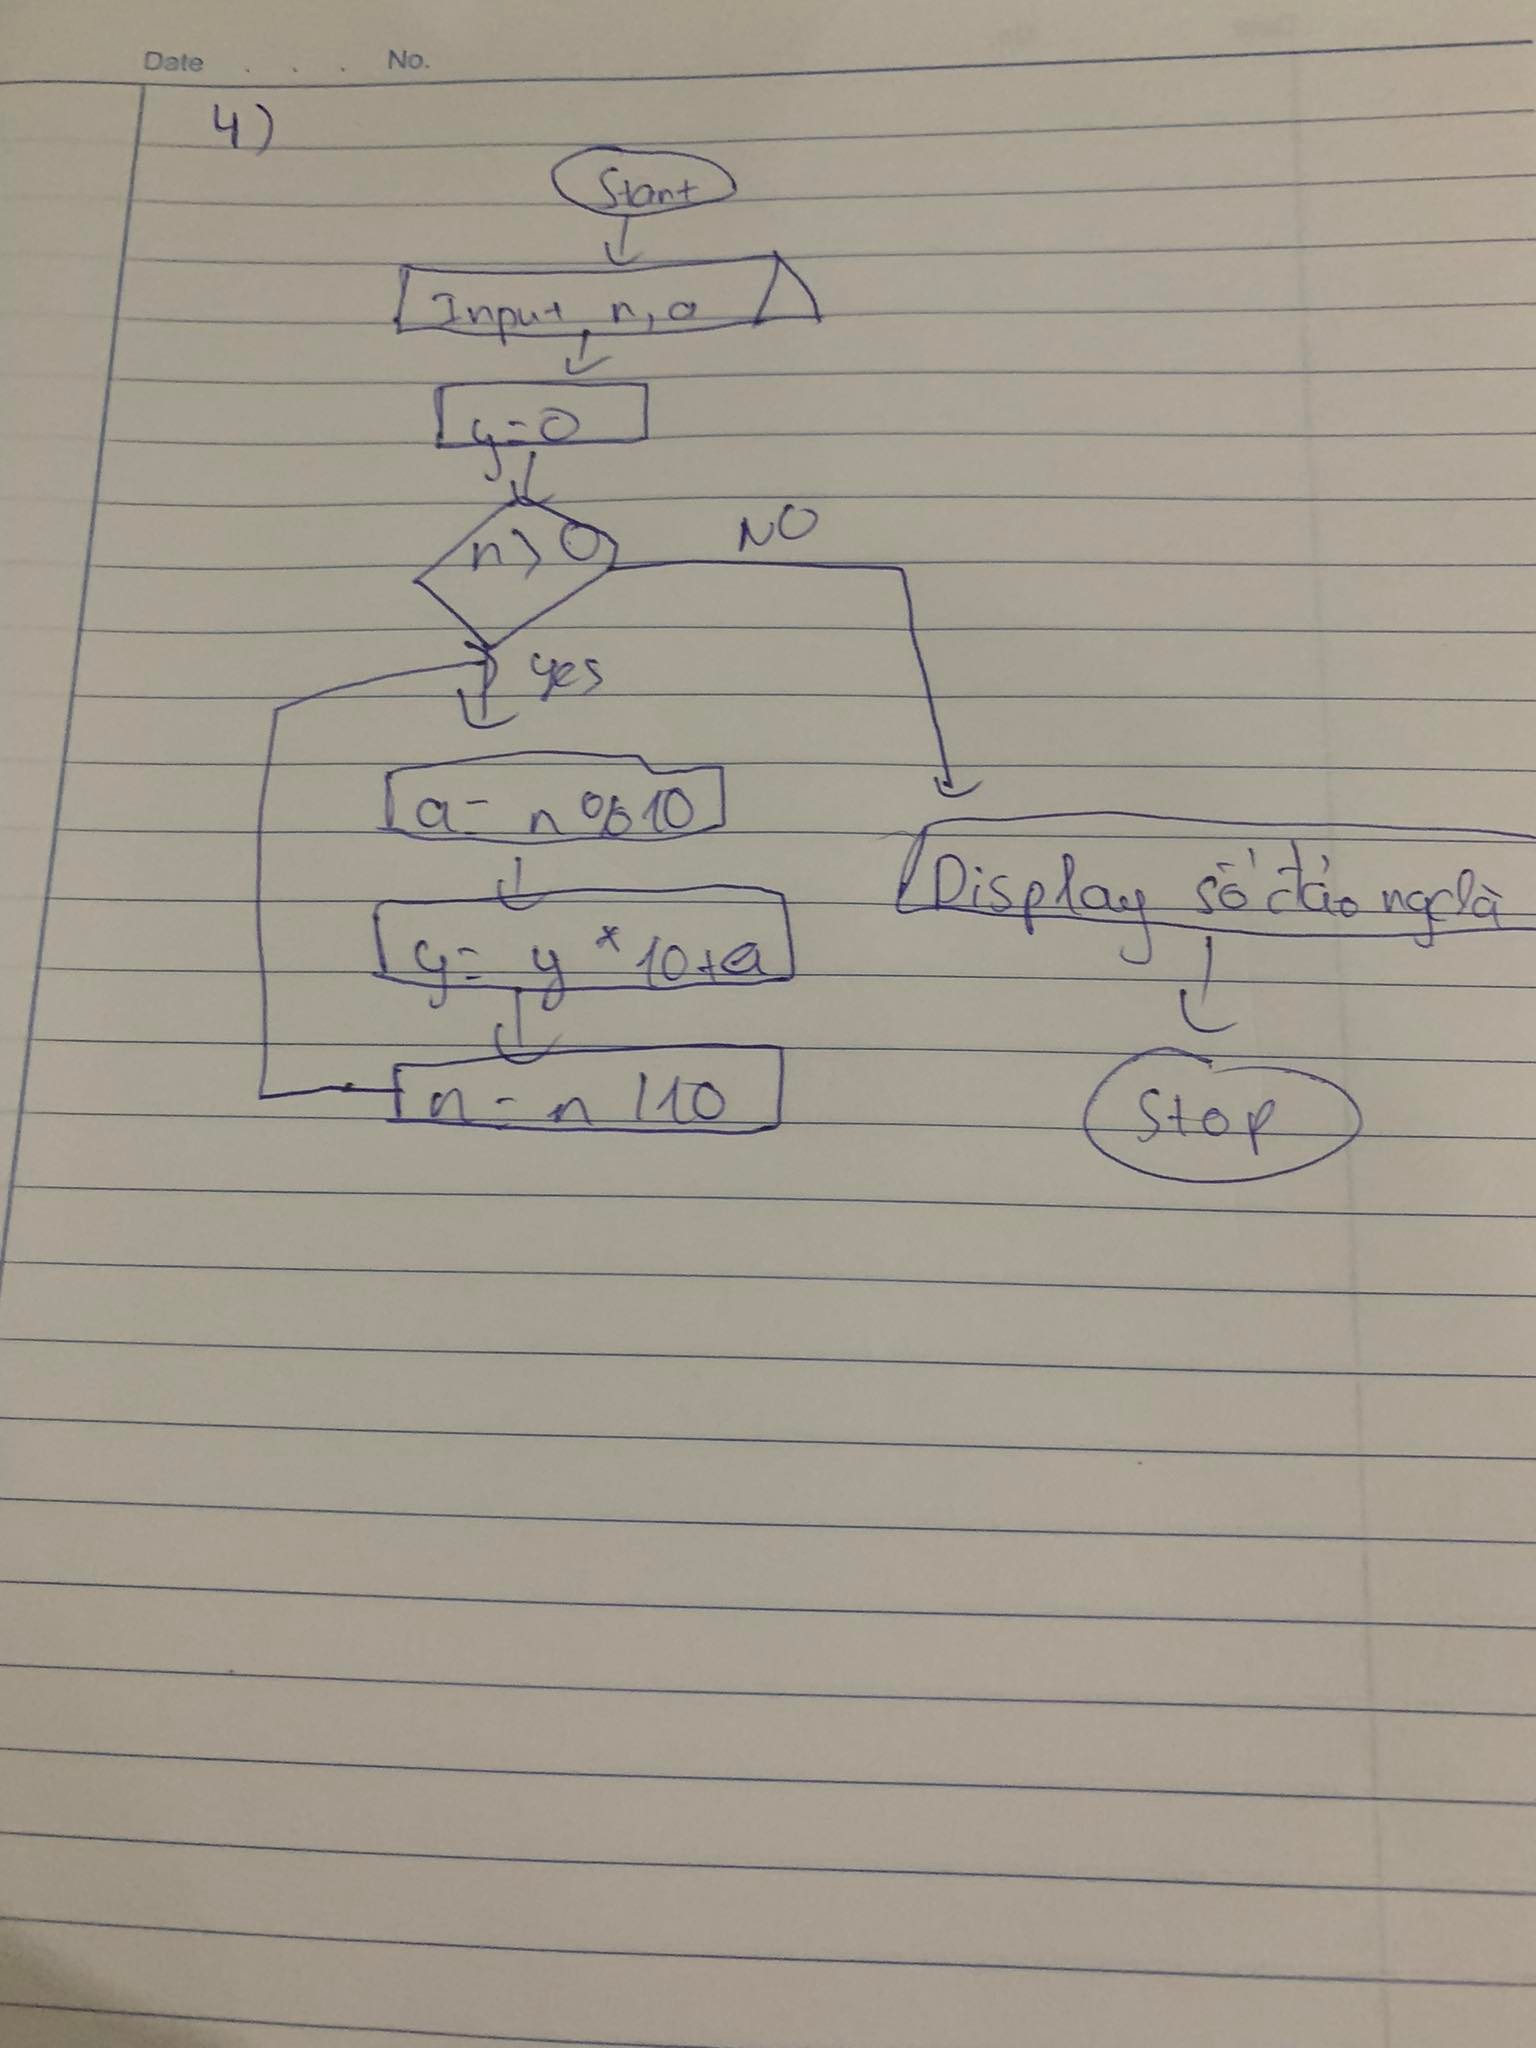 Date . . . No.
4)
Start
Input n, a
y=0
n > 0
NO
yes
a= n % 10
y= y * 10+a
n = n / 10
Display số đảo ngc là
Stop